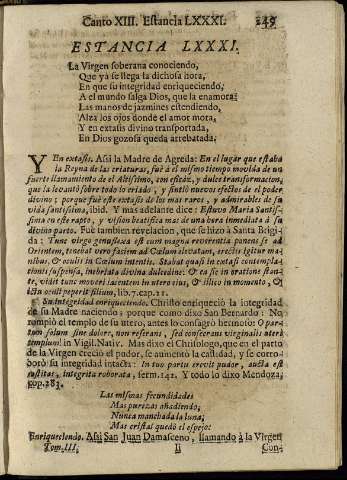 Canto XIII. Estancia LXXXI. 249
ESTANCIA LXXXI.
La Virgen soberana conociendo,
Que ya se llega la dichosa hora,
En que su integridad enriqueciendo,
A el mundo salga Dios, que la enamora:
Las manos de jazmines estendiendo,
Alza los ojos donde el amor mora,
Y en extasis divino transportada,
En Dios gozosa queda arrebatada.
Y En extasis. Assi la Madre de Agreda: En el lugar que estaba
la Reyna de las criaturas, fuè à el mismo tiempo movida de un
fuerte llamamiento de el Altissimo, con eficàz, y dulce transformacion,
que la levantò sobre todo lo criado, y sintiò nuevos efectos de el poder
divino; porque fuè este extasis de los mas raros, y admirables de su
vida santissima, ibid. Y mas adelante dice: Estuvo Maria Santis-
sima en este rapto, y vision beatifica mas de una hora inmediata à su
divino parto. Fuè tambien revelacion, que se hizo à Santa Brigi-
da: Tunc virgo genuflexa est cum magna reverentia ponens se ad
Orientem, tenebat vero faciem ad Cœlum elevatam, erectis igitur ma-
nibus, & oculis in Cœlum intentis. Stabat quasi in extasi contempla-
tionis suspensa, inebriata divina dulcedine: & ea sic in oratione stan-
te, vidit tunc moveri iacentem in utero eius, & illico in momento, &
ictu oculi peperit filium, lib. 7. cap. 21.
Su integridad enriqueciendo. Christo enriqueciò la integridad
de su Madre naciendo; porque como dixo San Bernardo: No
rompiò el templo de su utero, antes lo consagrò hermoso: O par-
tum solum sine dolore, non reserans, sed consecrans virginalis uteri
templum! in Vigil. Nativ. Mas dixo el Chrisologo, que en el parto
de la Virgen creciò el pudor, se aumentò la castidad, y se corro-
borò su integridad intacta: In tuo partu crevit pudor, aucta est
castitas, integrita roborata, serm. 142. Y todo lo dixo Mendoza,
cop. 283.
Las mismas fecundidades
Mas purezas añadiendo,
Nunca manchada la luna;
Mas cristal quedò el espejo:
Enriqueciendo. Assi San Juan Damasceno, llamando à la Virgen
Tom. III. Ii Con-